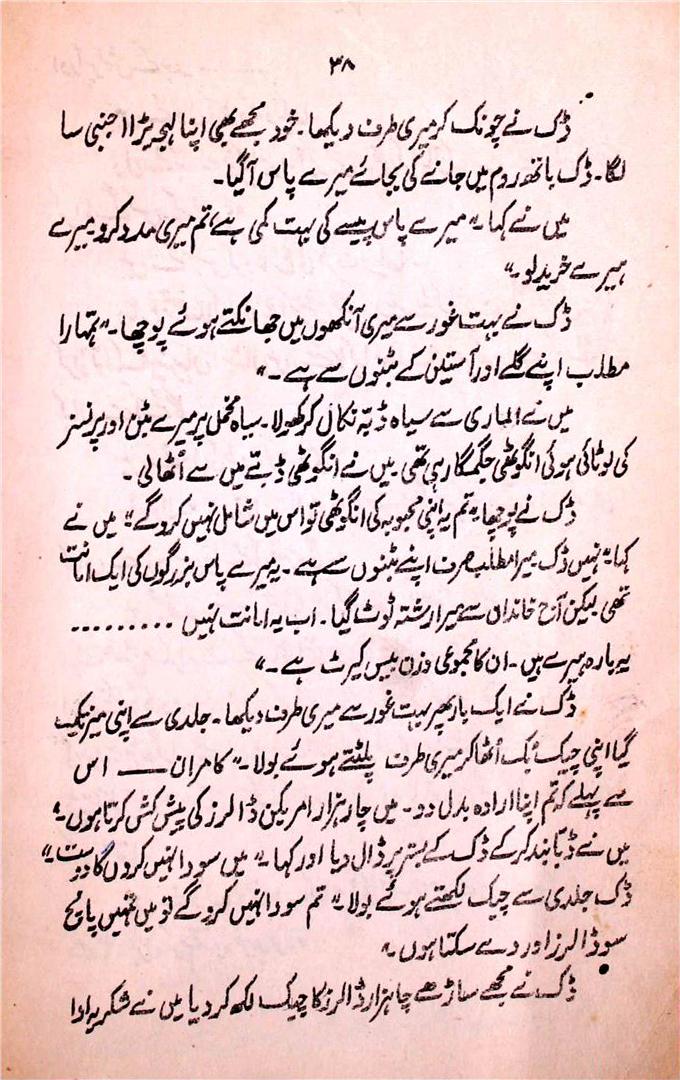 ۳۸
ڈک نے چونک کر میری طرف دیکھا۔ خود مجھے بھی اپنا لہجہ بڑا اجنبی سا
لگا۔ ڈک باتھ روم میں جانے کی بجائے میرے پاس آ گیا۔
میں نے کہا۔ "میرے پاس پیسے کی بہت کمی ہے، تم میری مدد کرو میرے
ہیرے خرید لو۔"
ڈک نے بہت غور سے میری آنکھوں میں جھانکتے ہوئے پوچھا۔ "تمہارا
مطلب اپنے گلے اور آستین کے بٹنوں سے ہے۔"
میں نے الماری سے سیاہ ڈبّہ نکال کر کھولا۔ سیاہ مخمل پر میرے بٹن اور پرنسز
کی لوٹائی ہوئی انگوٹھی جگمگا رہی تھی۔ میں نے انگوٹھی ڈبّے میں سے اُٹھا لی۔
ڈک نے پوچھا "تم یہ اپنی محبوبہ کی انگوٹھی تو اس میں شامل نہیں کرو گے" میں نے
کہا "نہیں ڈک میرا مطلب صرف اپنے بٹنوں سے ہے۔ یہ میرے پاس بزرگوں کی ایک امانت
تھی لیکن آج خاندان سے میرا رشتہ ٹوٹ گیا۔ اب یہ امانت نہیں .........
یہ بارہ ہیرے ہیں۔ ان کا مجموعی وزن بیس کیرٹ ہے۔"
ڈک نے ایک بار پھر بہت غور سے میری طرف دیکھا۔ جلدی سے اپنی میز تک
گیا اپنی چیک بُک اُٹھا کر میری طرف پلٹتے ہوئے بولا۔ "کامران — اس
سے پہلے کہ تم اپنا ارادہ بدل دو۔ میں چار ہزار امریکن ڈالرز کی پیش کش کرتا ہوں۔"
میں نے ڈبّا بند کر کے ڈک کے بستر پر ڈال دیا اور کہا۔ "میں سودا نہیں کروں گا دوست۔"
ڈک جلدی سے چیک لکھتے ہوئے بولا۔ "تم سودا نہیں کرو گے تو میں تمہیں پانچ
سو ڈالرز اور دے سکتا ہوں۔"
ڈک نے مجھے ساڑھے چار ہزار ڈالرز کا چیک لکھ کر دیا میں نے شکریہ ادا